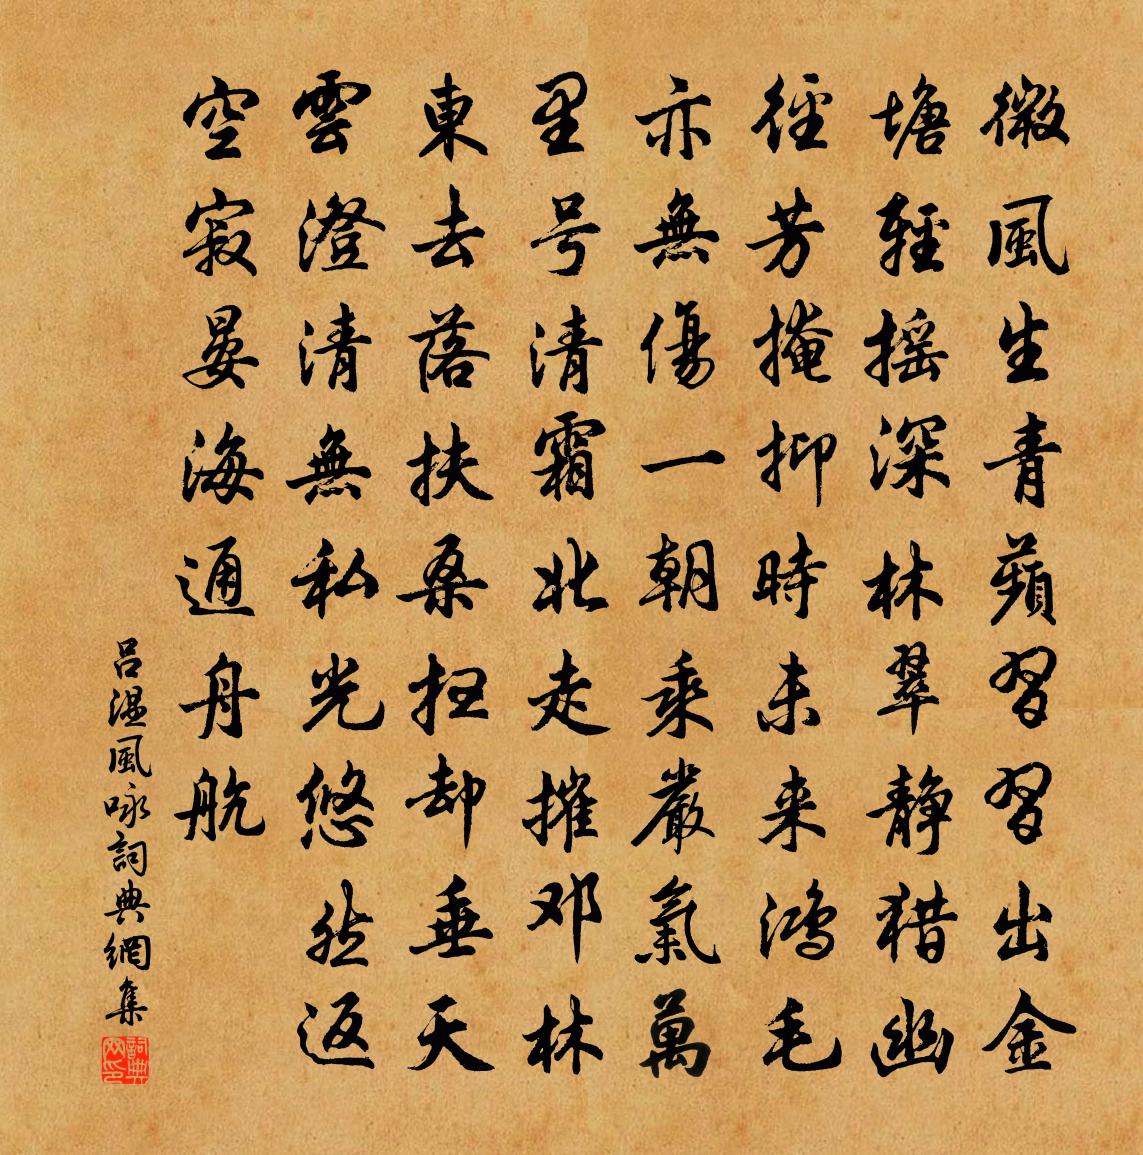 微風生青蘋習習出金
塘輕搖深林翠靜猎幽
徑芳掩抑時未来鴻毛
亦無傷一朝乘嚴氣萬
里号清霜北走摧邓林
東去落扶桑扫却垂天
雲澄清無私光悠然返
空寂晏海通舟航
吕温風咏詞典網集
詞典网印